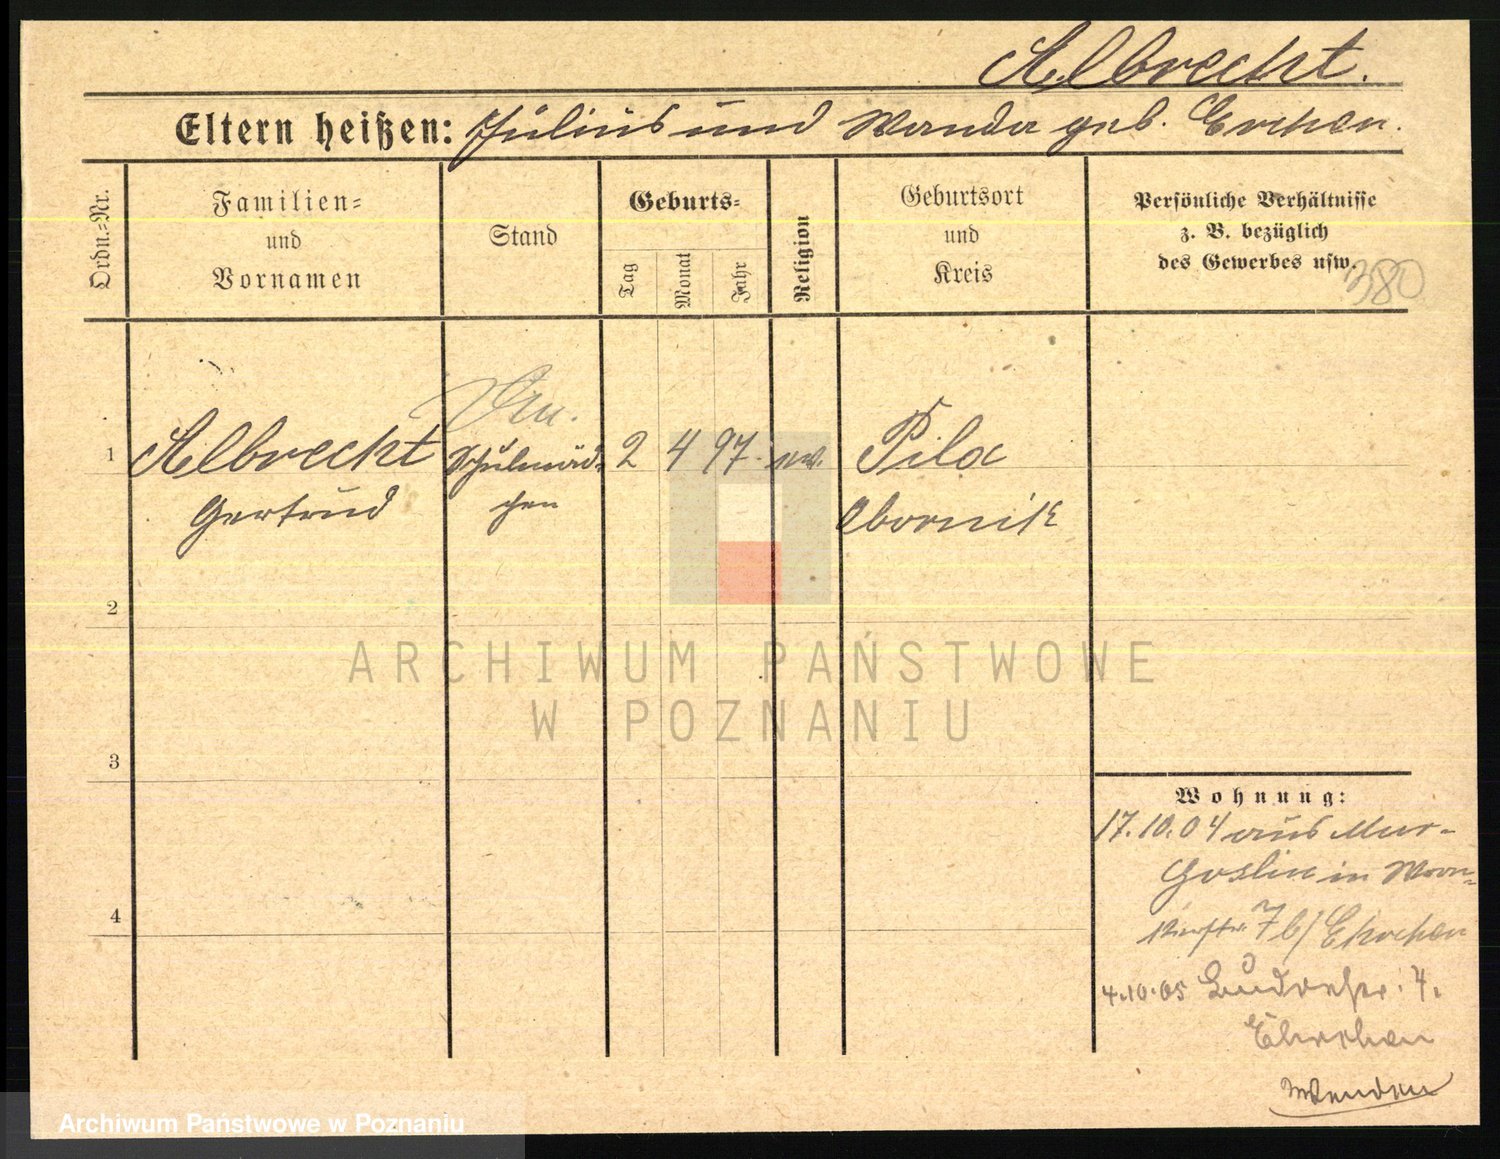 Albrecht.
Eltern heißen: Julius und Wanda geb.
Ordn.-Nr.
Familien-
und
Vornamen
Stand
Geburts-
Tag
Monat
Jahr
Religion
Geburtsort
und
Kreis
Persönliche Verhältnisse
z. B. bezüglich
des Gewerbes usw.
380
1
Albrecht
Schulmäd-
2 4 97. ev.
Pila
Gertrud
chen
Obornik
2
ARCHIWUM PAŃSTWOWE
W POZNANIU
3
Wohnung:
17.10.04 aus Mur-
Goslin in
7 b/
4
4.10.05 4.
Wenden
Archiwum Państwowe w Poznaniu